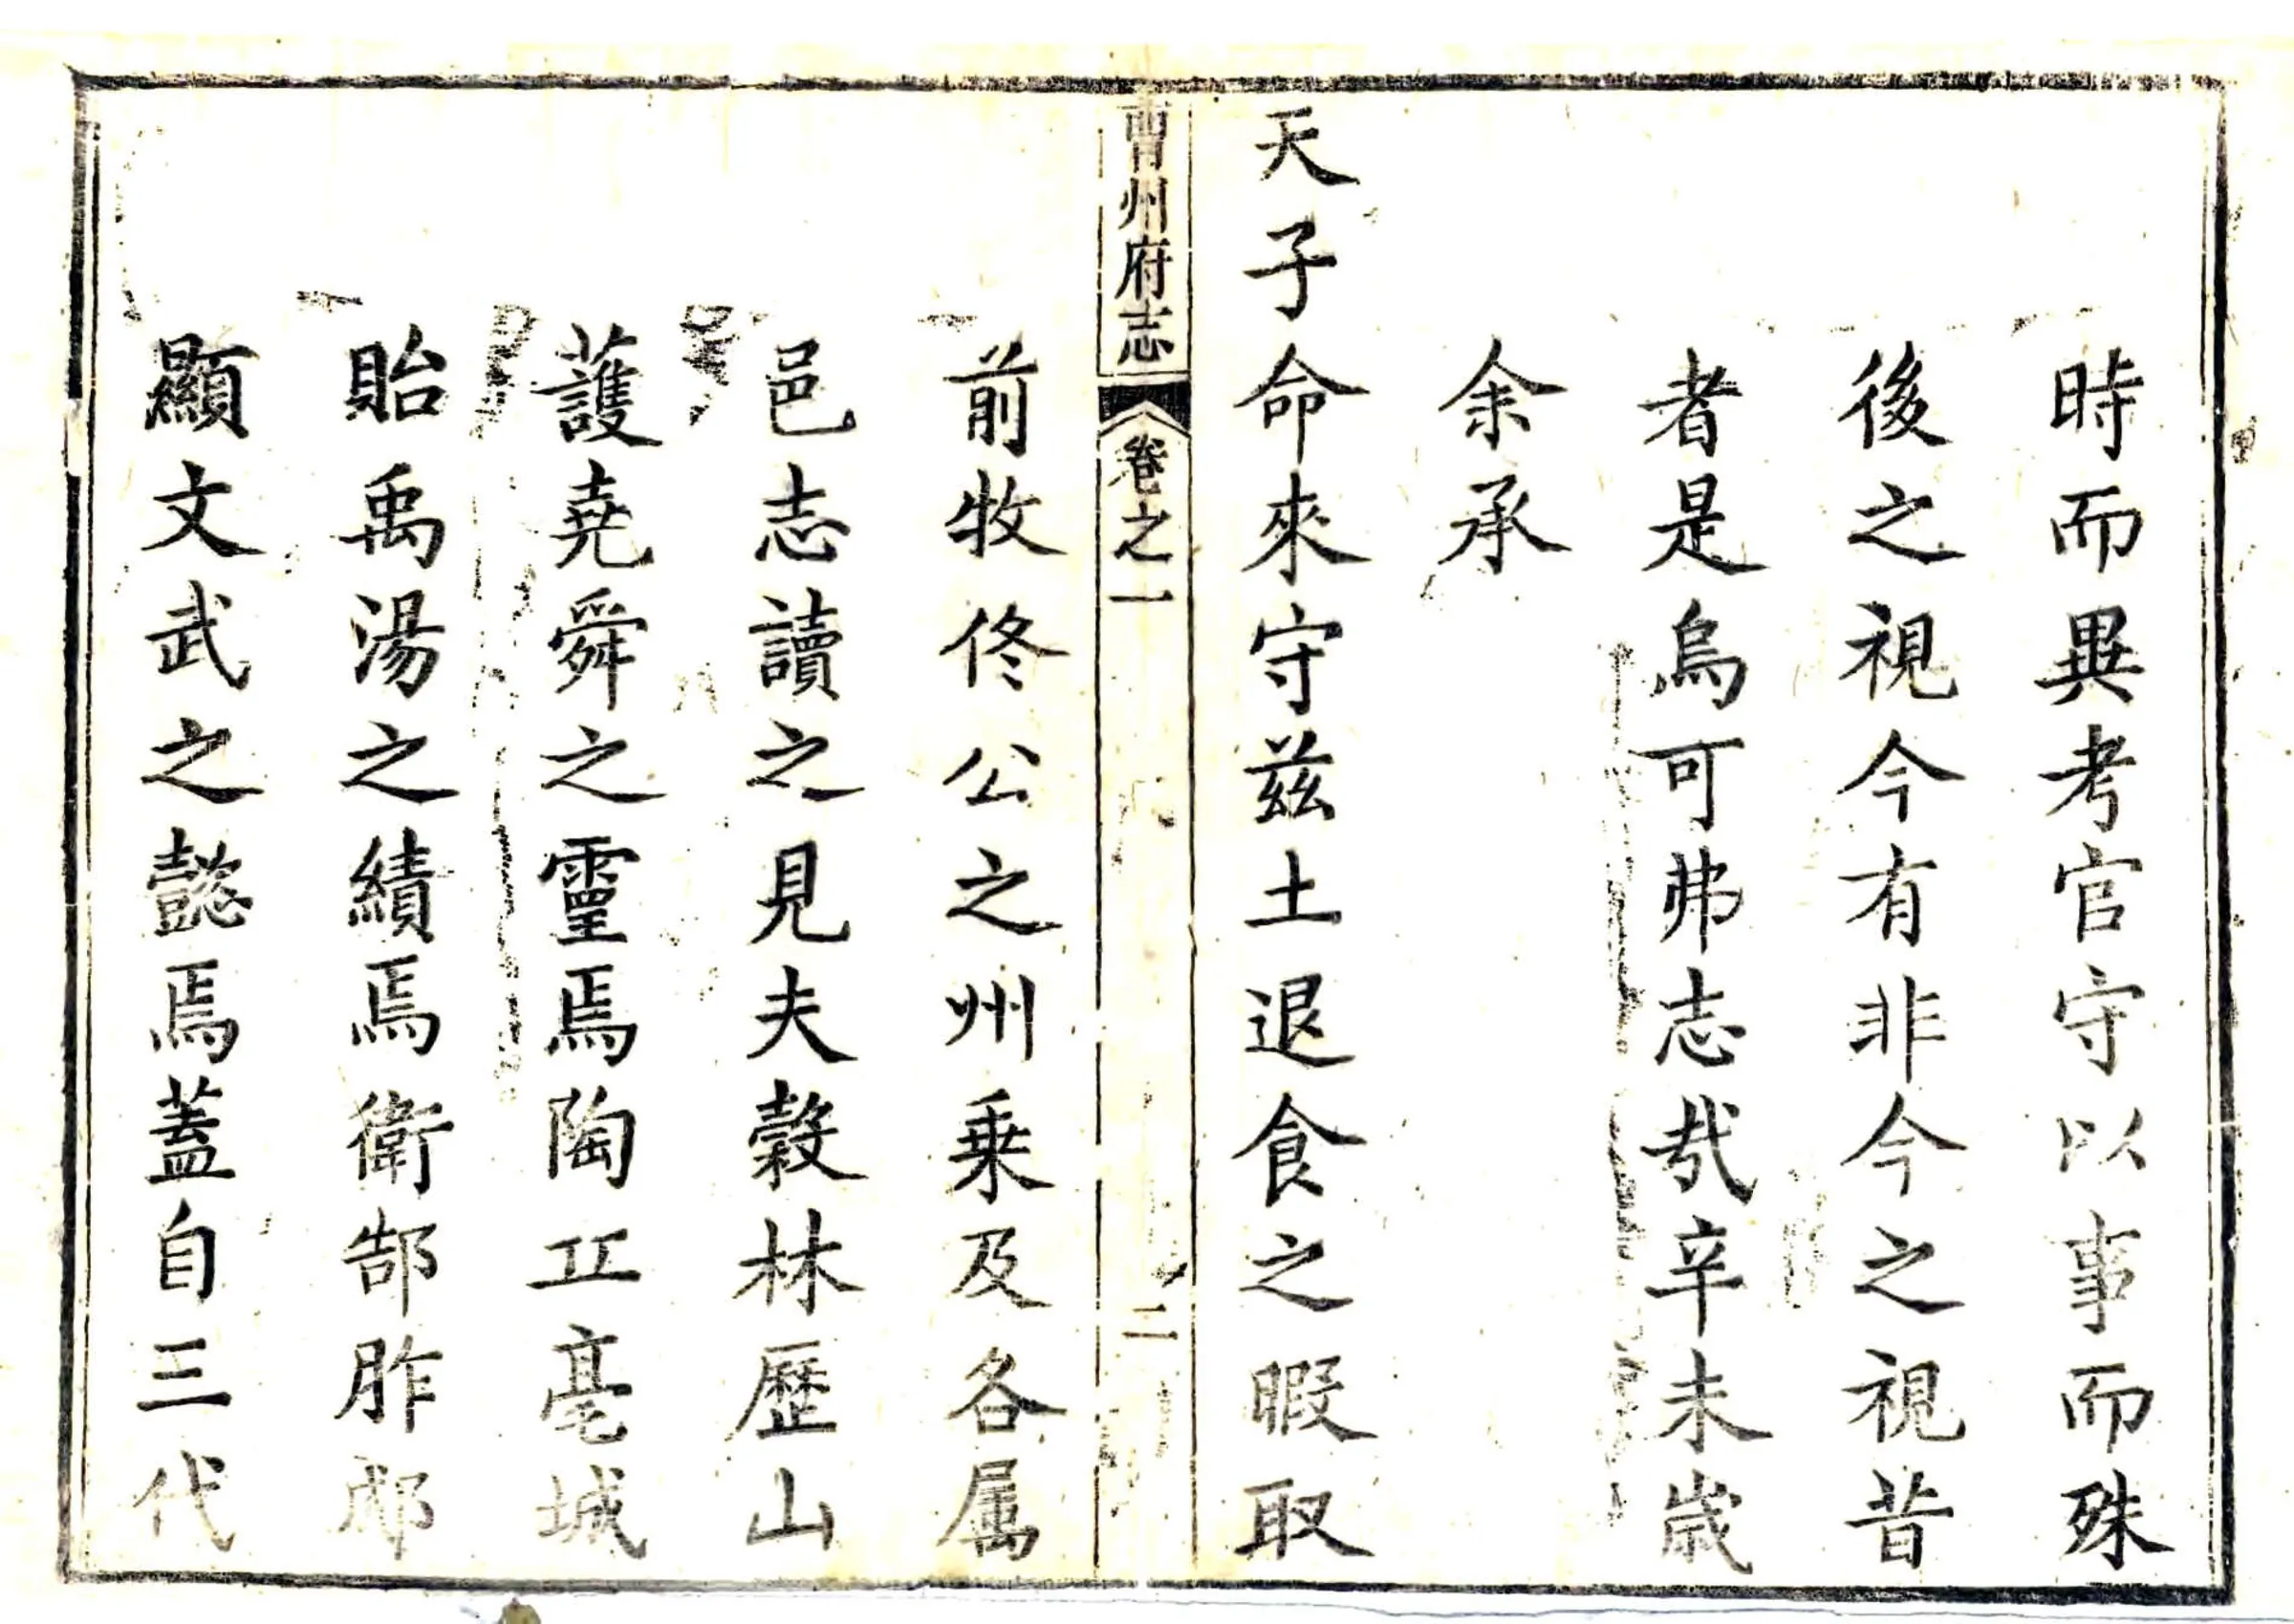 時而異考官守以事而殊
後之視今有非今之視昔
者是烏可弗志哉辛未歲
余承
天子命來守茲土退食之暇取
曹州府志 卷之一 二
前牧佟公之州乗及各属
邑志讀之見夫穀林歷山
護堯舜之靈焉陶丘亳城
貽禹湯之績焉衛郜胙郕
顯文武之懿焉蓋自三代